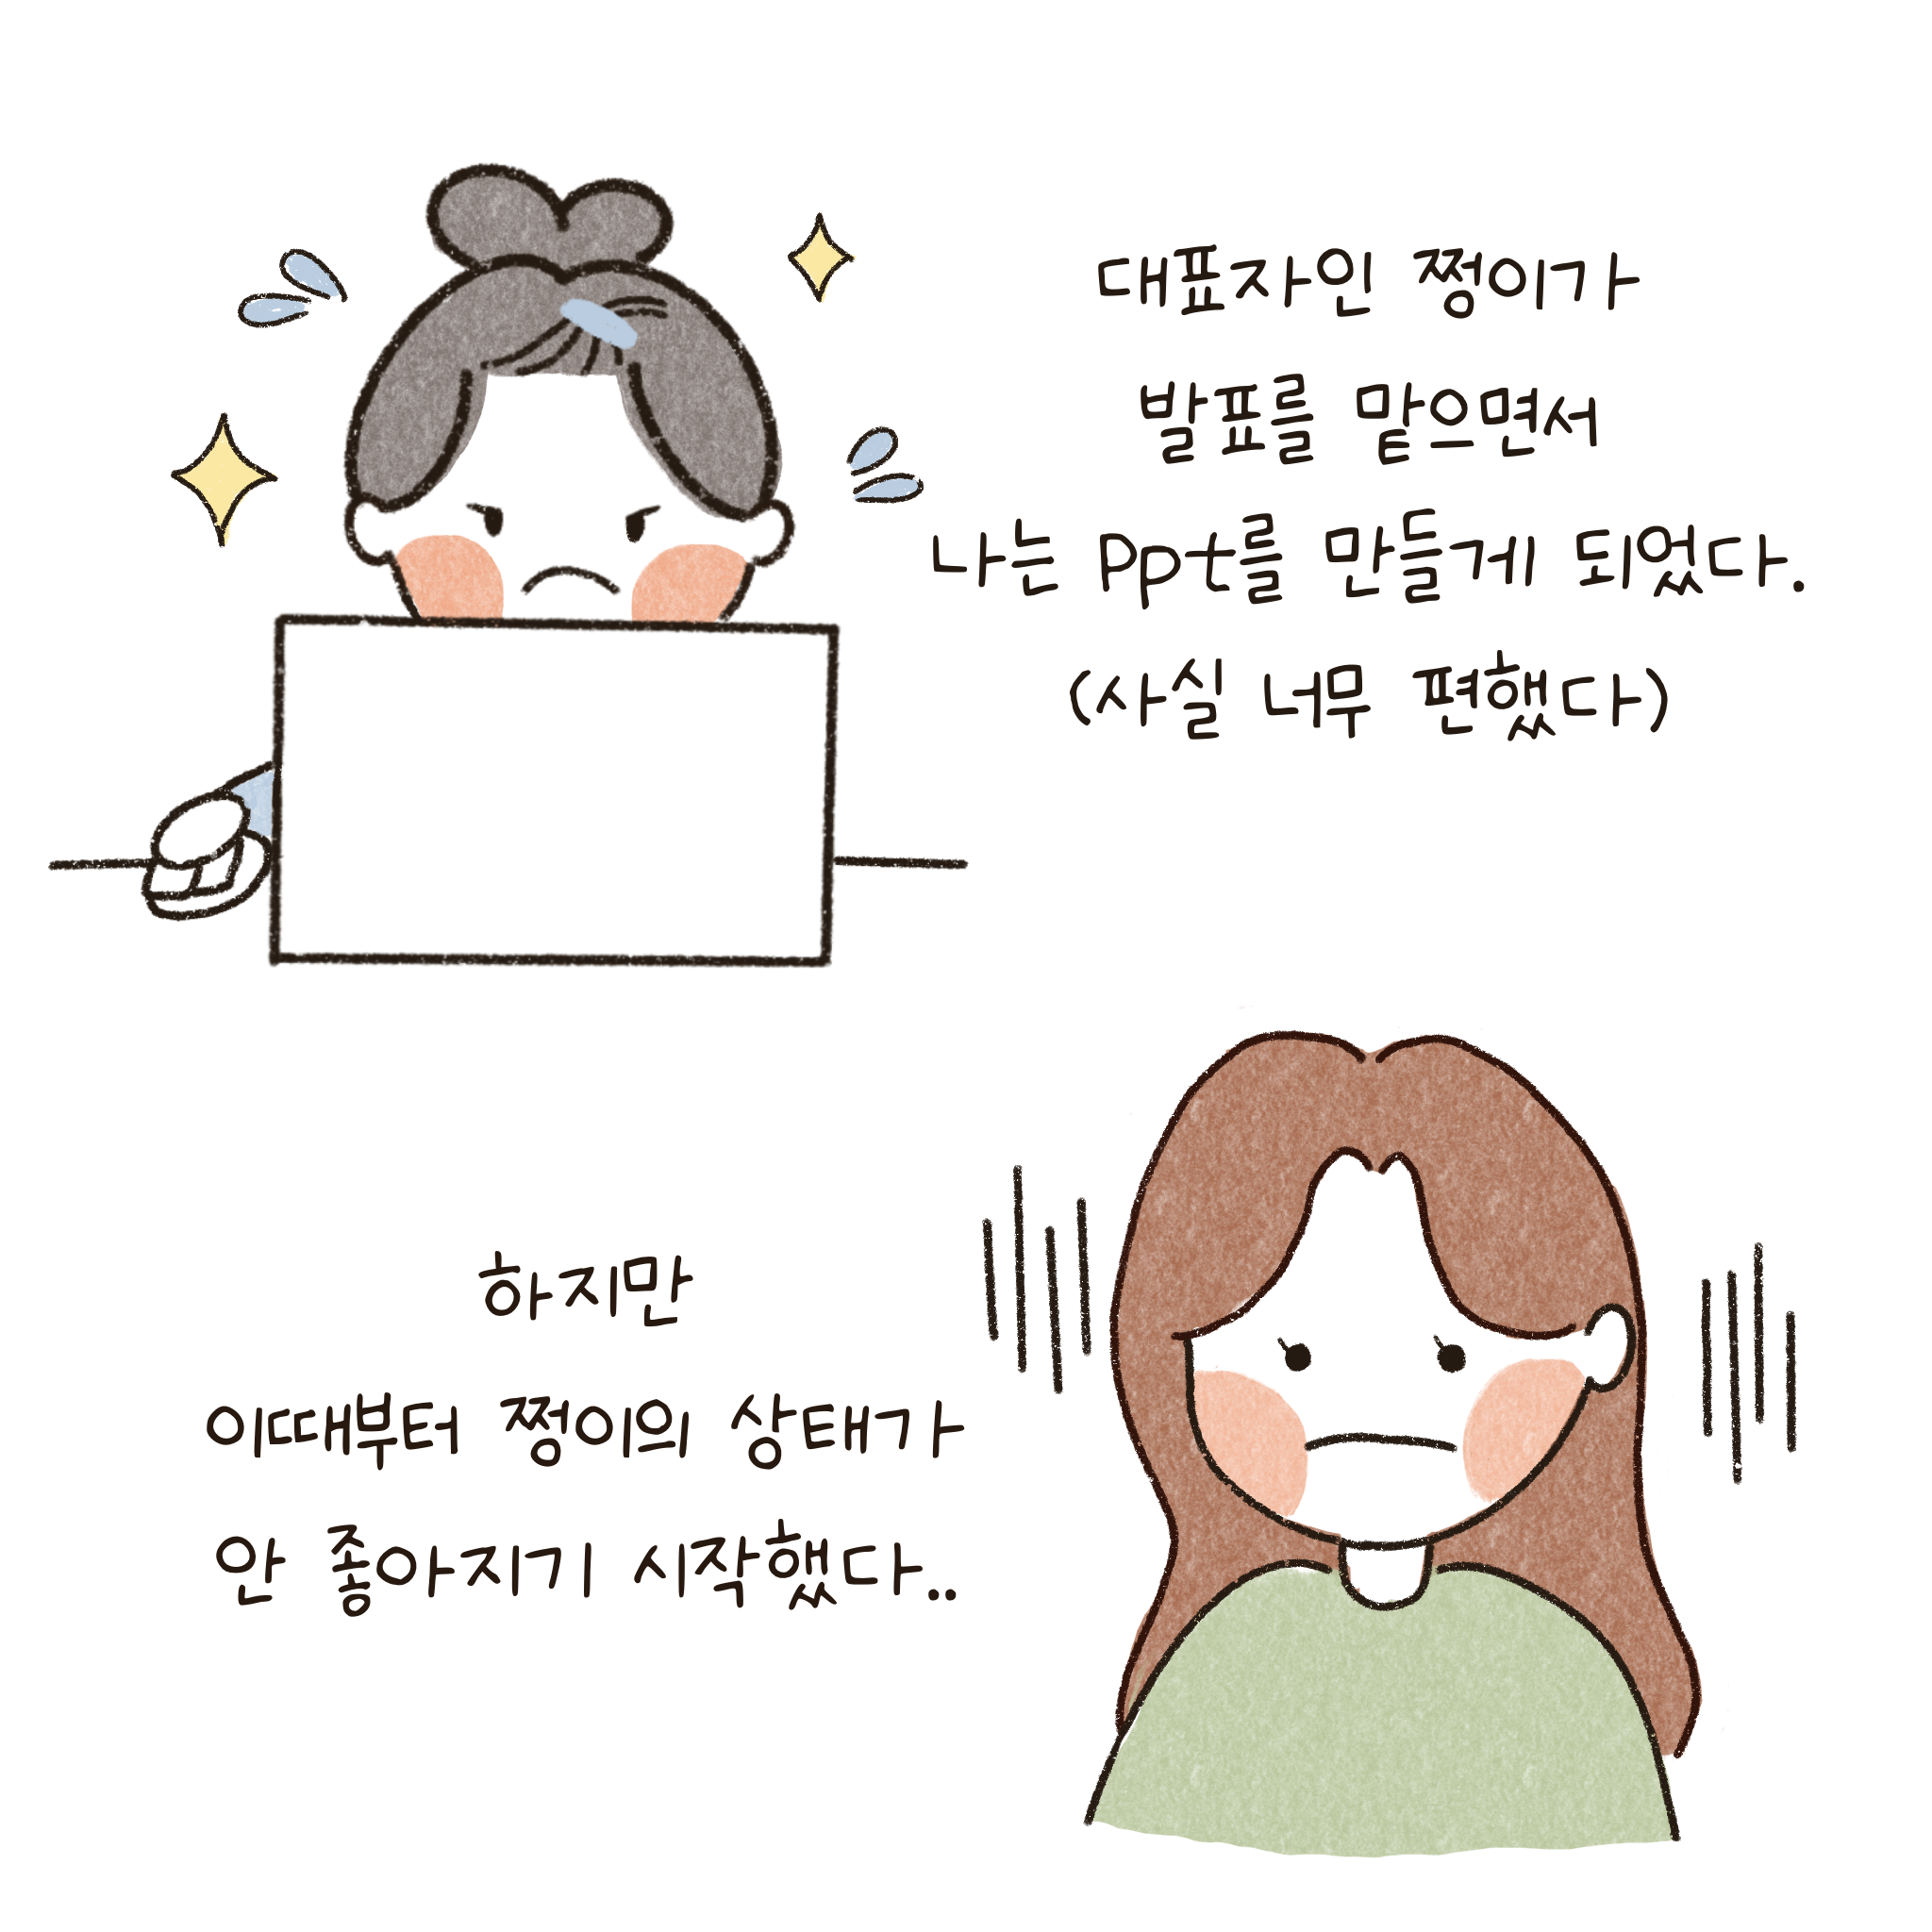 대표자인 쩡이가
발표를 맡으면서
나는 ppt를 만들게 되었다.
(사실 너무 편했다)
하지만
이때부터 쩡이의 상태가
안 좋아지기 시작했다..